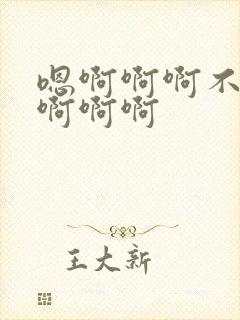 嗯啊啊啊不
啊啊啊
王大新